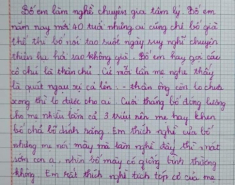 Bố em làm nghề chuyên gia tâm lý. Bố em
năm nay mới 40 tuổi nhưng ai cũng chê bố già
thế thì bố nói tao suốt ngày suy nghĩ chuyện
thiên hạ hỏi sao không già. Bố em hay gọi
có chửi là thần chú. Cứ mỗi lần mẹ nghe thấy
là quát ngay thần ông còn lo chưa
xong thì lo được cho ai. Cuối tháng bố đóng lương
cho mẹ nhiều lắm cả 3 triệu nên mẹ hay khen
bố chả lo được nắng. Em thích nghề của bố
nhưng mẹ nói mày mà làm nghề đấy thì
con ạ, nhìn bố mày có giống bình thường
không. Em rất thích nghề của mẹ